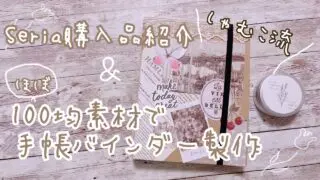 Seria購入品紹介
しゃむこ流
&
ほぼ
100均素材で
手帳バインダー製作
HOME
make
today
great